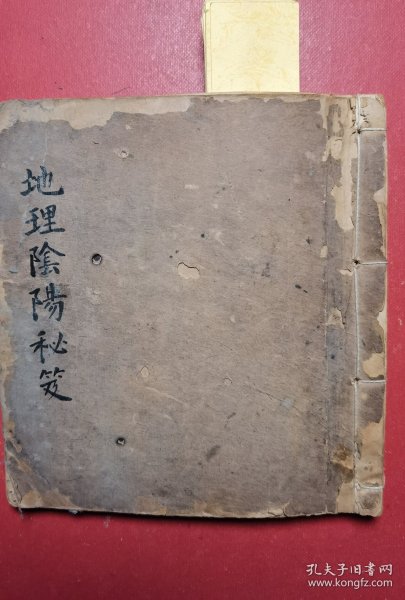 地理陰陽秘笈
孔夫子旧书网
www.kongfz.com